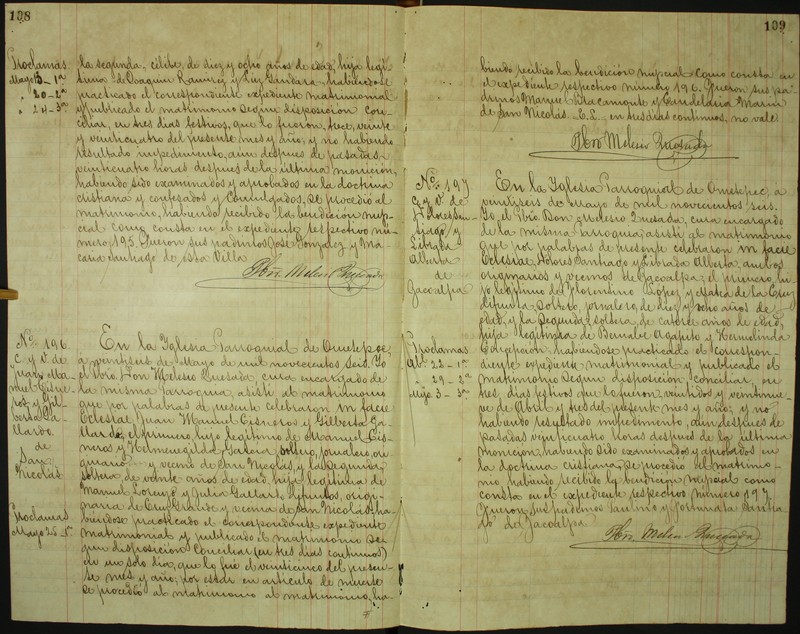 198
Proclamas.
Mayo 13-1ª
" 20-2ª
" 24-3ª
la segunda, célibe, de diez y ocho años de edad, hija legí-
tima de Joaquín Ramírez y Luz Gandara, habiéndose
practicado el correspondiente expediente matrimonial
y publicado el matrimonio segun disposicion con-
ciliar, en tres dias festivos, que lo fueron, trece, veinte
y veinticuatro del presente mes y año; y no habiendo
resultado impedimento, aun despues de pasadas,
veinticuatro horas despues de la última monicion,
habiendo sido examinados y aprobados en la doctrina
cristiana y confesados y comulgados, se procedió al
matrimonio, habiendo recibido la bendicion nup-
cial como consta en el expediente respectivo nu-
mero 195. Fueron sus padrinos José Gonzalez y Ma-
caria Santiago de esta Villa
Pbro. Melesio Quesada
Nº 196.
C. y V. de
Juan Ma-
nuel Cisne-
ros y Gil-
berta Ga-
llardo.
de
San
Nicolas
Proclamas
Mayo 25-1ª
En la Iglesia Parroquial de Ometepec,
a veintiseis de Mayo de mil novecientos seis. Yo
el Pbro. Don Melesio Quesada, cura encargado de
la misma Parroquia, asistí al matrimonio
que por palabras de presente celebraron in facie
Eclesiae, Juan Manuel Cisneros y Gilberta Ga-
llardo; el primero, hijo legítimo de Manuel Cis-
neros y Hermenegilda Garcia, soltero, jornalero, ori-
ginario y vecino de San Nicolas, y la segunda,
soltera de veinte años de edad, hija legítima de
Manuel Lorenzo y Julia Gallardo, difuntos, origi-
naria de Cruz Grande y vecina de San Nicolas; ha-
biendose practicado el correspondiente expediente
matrimonial y publicado el matrimonio se-
gun disposicion conciliar (en tres dias continuos)
en un solo dia, que lo fué el veinticinco del presen-
te mes y año; por estar en artículo de muerte
se procedió al matrimonio al matrimonio, ha-
199
biendo recibido la bendicion nupcial como consta en
el expediente respectivo número 196. Fueron sus pa-
drinos Manuel y Candelaria Marin
de San Nicolas. E.L. en tres dias continuos, no vale
Pbro. Melesio Quesada
Nº 197
C. y V. de
Dolores San-
tiago y
Librada
Alberta
de
Jacoalpa
Proclamas
Abr. 22-1ª
" 29-2ª
Mayo. 3-3ª
En la Iglesia Parroquial de Ometepec, a
veintiseis de Mayo de mil novecientos seis.
Yo el Pbro. Don Melesio Quesada, cura encargado
de la misma Parroquia, asistí al matrimonio
que por palabras de presente celebraron in facie
Eclesiae, Dolores Santiago y Librada Alberta, ambos
originarios y vecinos de Jacoalpa; el primero, hi-
jo legítimo de Florentino Lopez y Maria de la Cruz
difunta, soltero, jornalero, de diez y ocho años de
edad, y la segunda, soltera, de catorce años de edad,
hija legítima de Bernabe Agapito y Hermelinda
Concepcion, habiéndose practicado el correspon-
diente expediente matrimonial y publicado el
matrimonio segun disposicion conciliar, en
tres dias festivos que lo fueron, veintidos y veintinue-
ve de Abril y tres del presente mes y año; y no
habiendo resultado impedimento, aun despues de
pasadas veinticuatro horas despues de la ultima
monicion, habiendo sido examinados y aprobados en
la doctrina cristiana, se procedió al matrimo-
nio, habiendo recibido la bendicion nupcial como
consta en el expediente respectivo número 197.
Fueron sus padrinos Paulino y Fortunata
de Jacoalpa
Pbro. Melesio Quesada